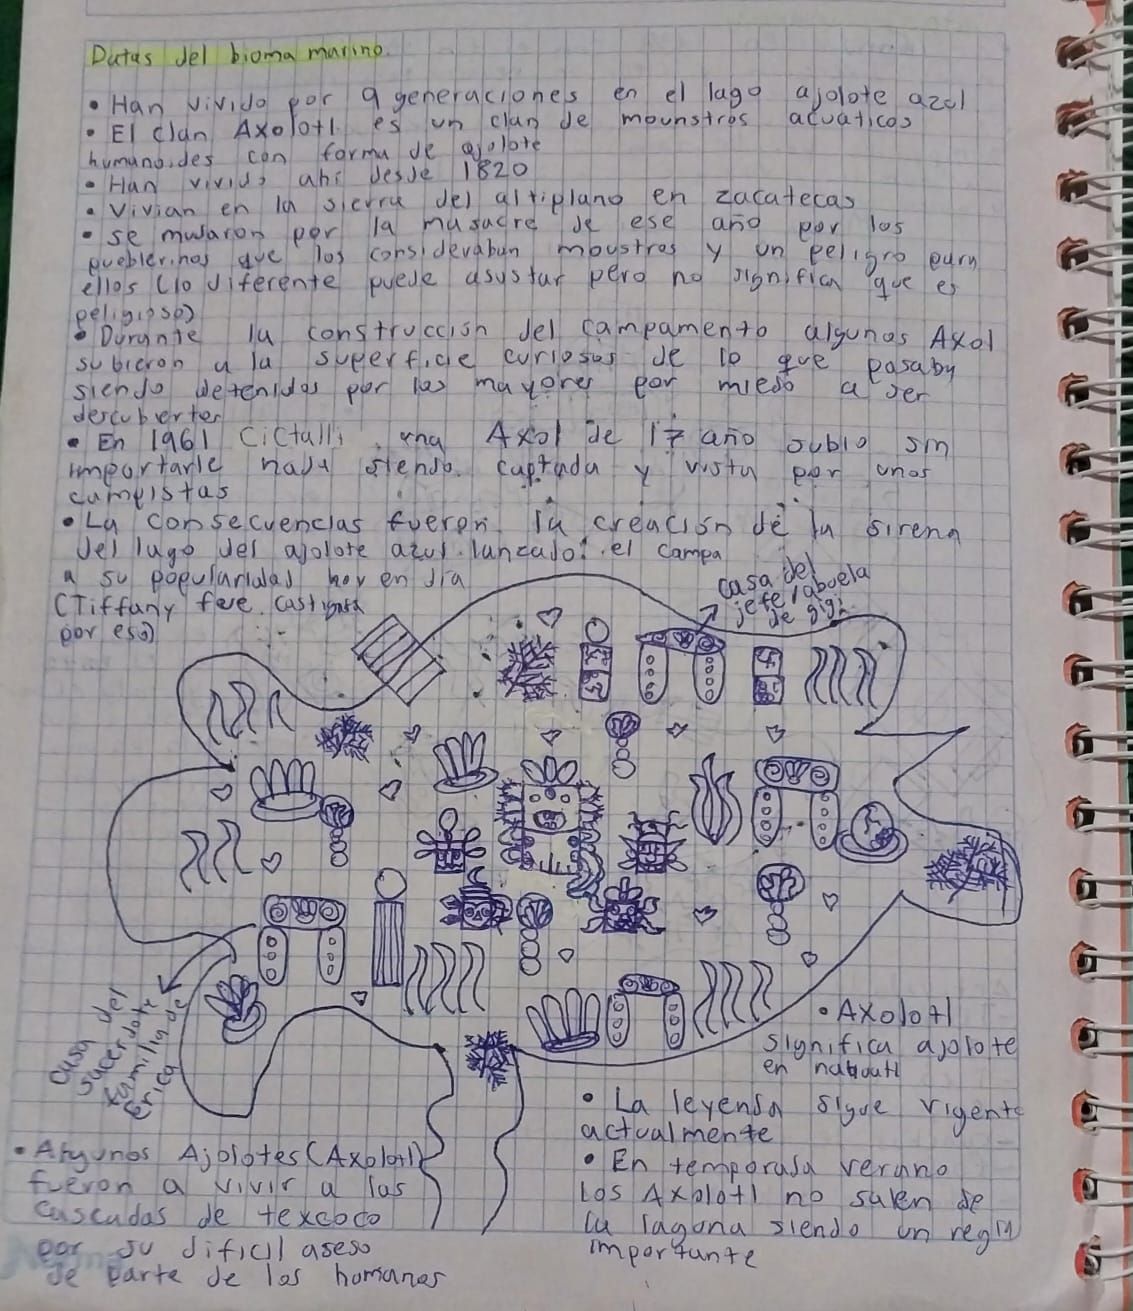 Datas del bioma marino
• Han vivido por 9 generaciones en el lago ajolote azul
• El clan Axolotl es un clan de mounstros acuaticos
humanoides con forma de ajolote
• Han vivido ahi desde 1820
• Vivian en la sierra del altiplano en zacatecas
• se mudaron por la masacre de ese año por los
pueblerinos que los consideraban moustros y un peligro para
ellos (lo diferente puede asustar pero no significa que es
peligioso)
• Durante la construccion del campamento algunos Axol
subieron a la superficie curiosos de lo que pasaba
siendo detenidos por los mayores por miedo a ser
descubiertos
• En 1961 Cictalli una Axol de 17 año subio sin
importarle nada siendo captada y vista por unos
campistas
• La consecuencias fueron la creacion de la sirena
del lago del ajolote azul lanzado el campa
a su popularidad hoy en dia
(Tiffany fue castigada
por eso)
casa del
jefe/abuela
de gigi
casa del
sacerdote
familia de
Erica
• Axolotl
significa ajolote
en nahuatl
• La leyenda sigue vigente
actualmente
• En temporada verano
los Axolotl no salen de
la laguna siendo un regla
importante
• Algunos Ajolotes (Axolotl)
fueron a vivir a las
cascadas de texcoco
por su dificil aseso
de parte de los humanos